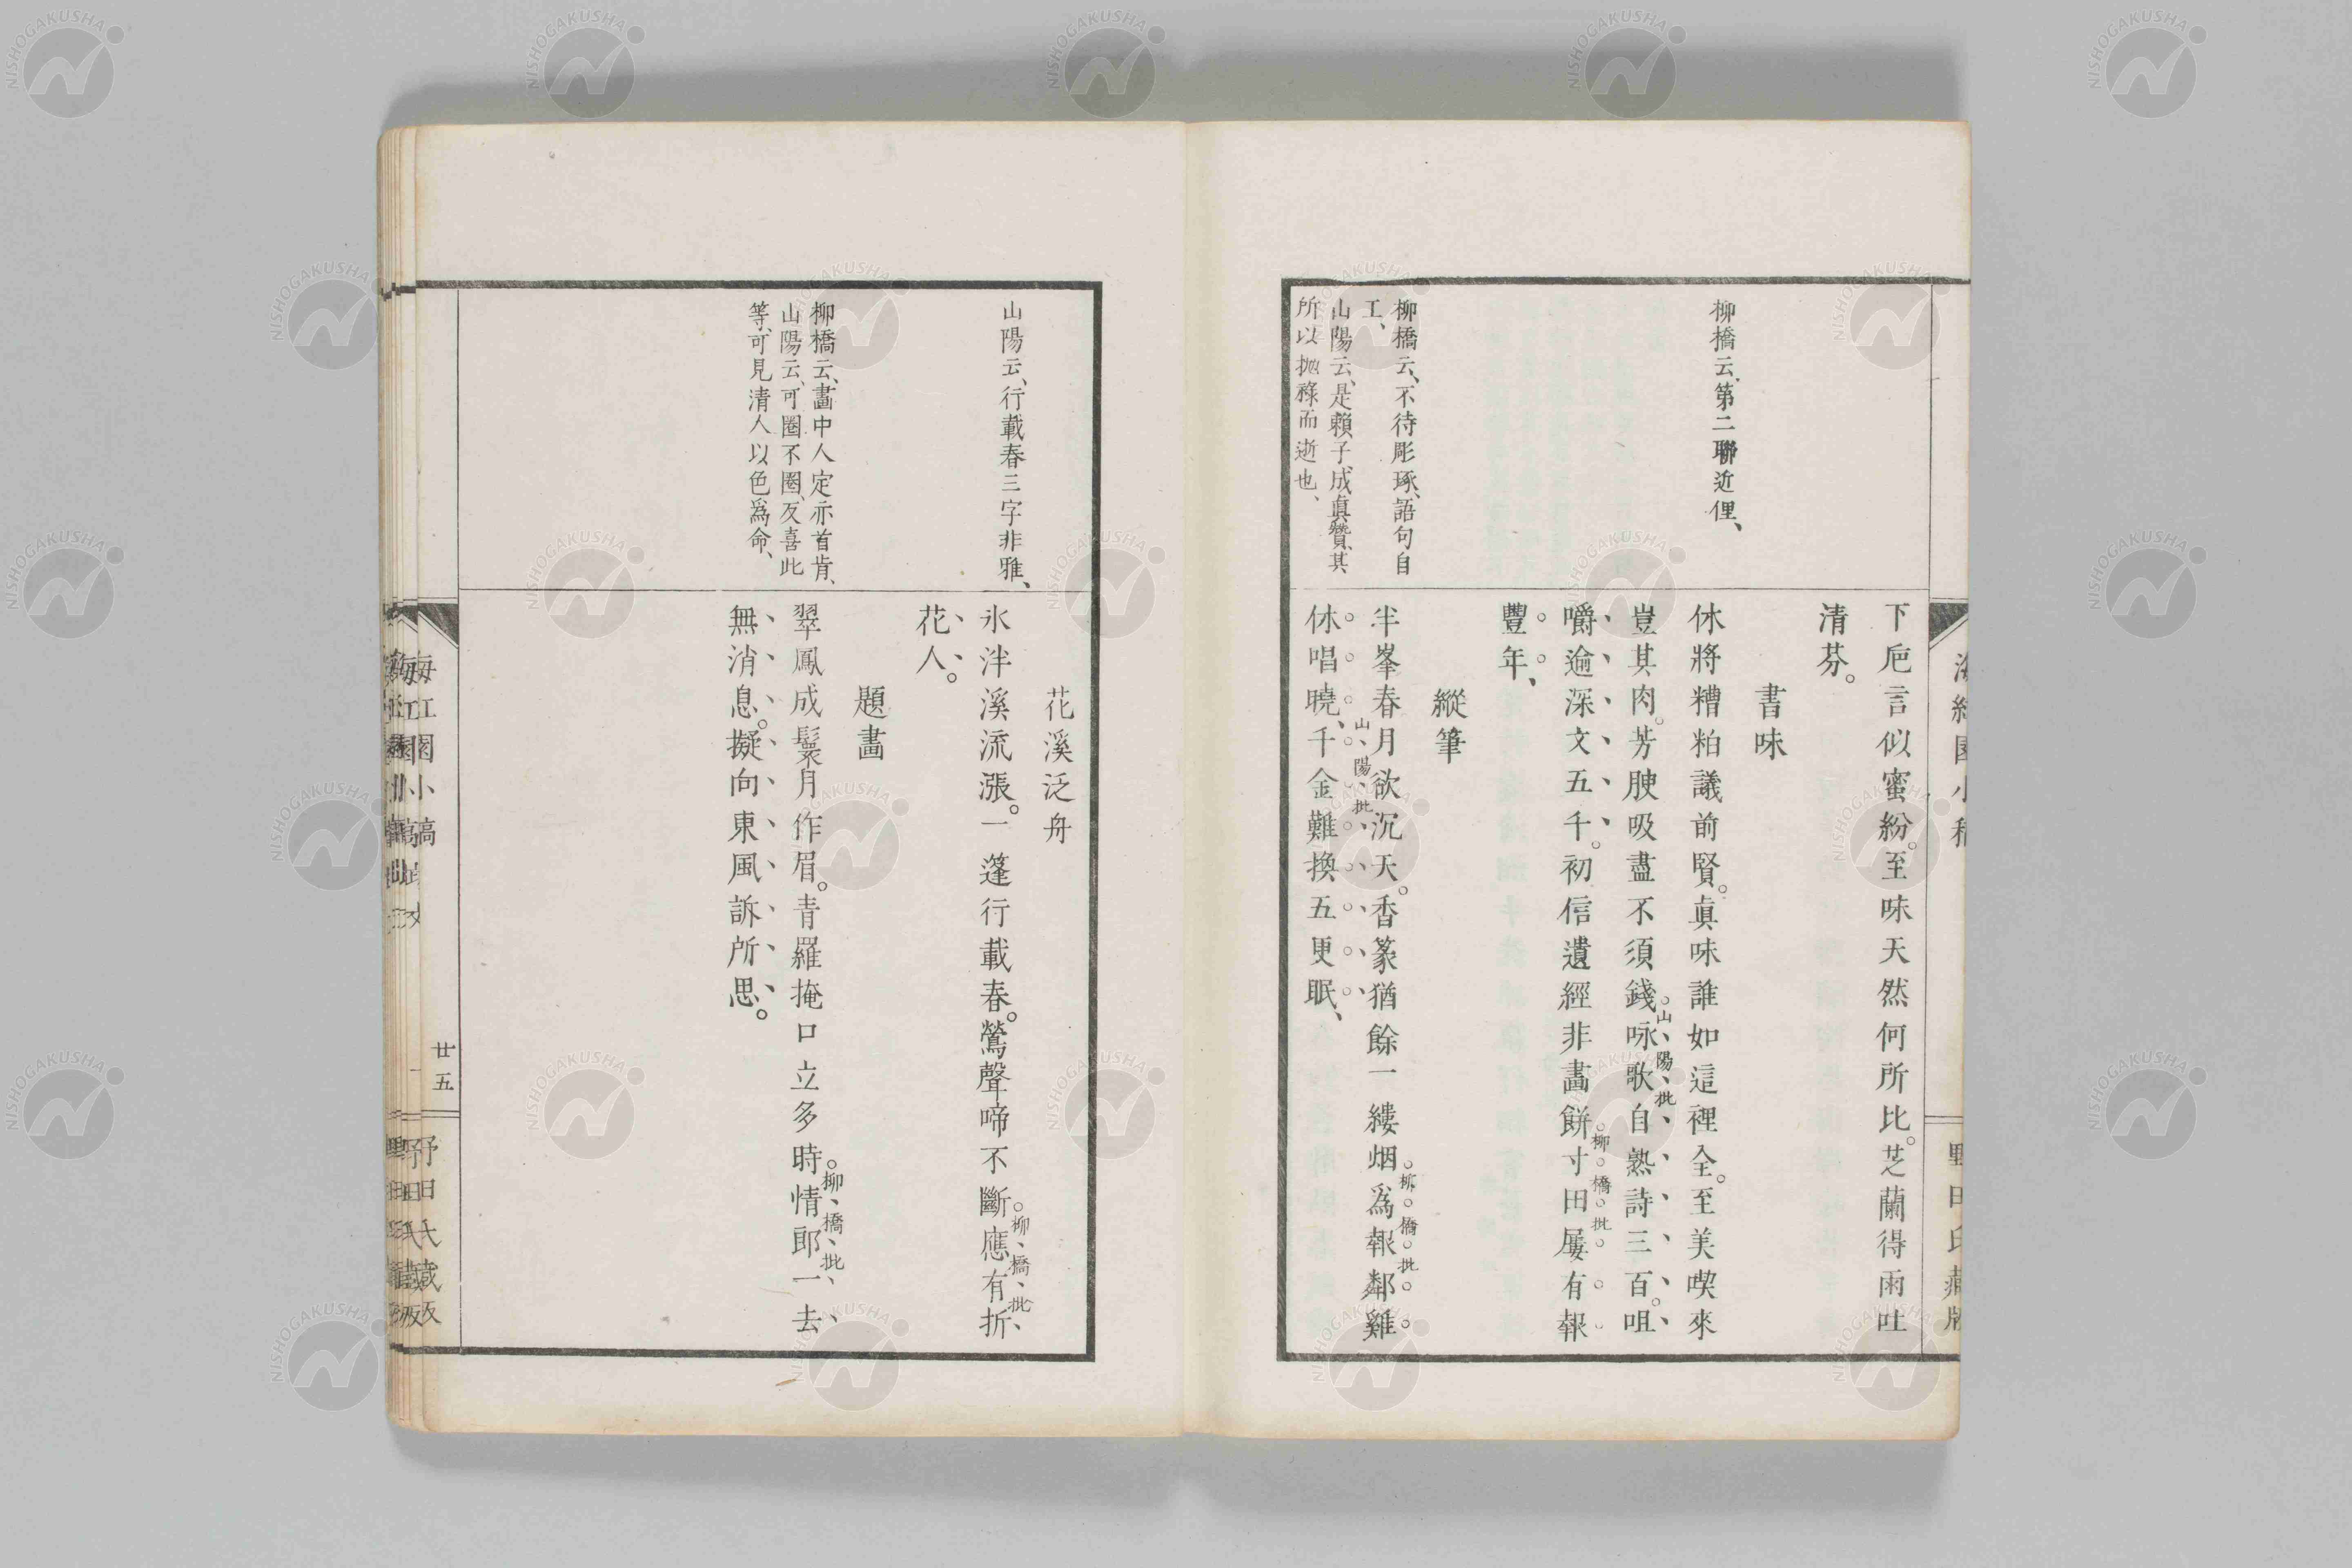 下巵言似蜜紛。至味天然何所比。芝蘭得雨吐
清芬。
書味
柳橋云、第二聯近俚、
休將糟粕議前賢。眞味誰如這裡全。至美喫來
豈其肉。芳腴吸盡不須錢。咏歌自熟詩三百。咀
山陽批
嚼逾深文五千。初信遺經非畫餅。寸田屢有報
柳橋批
豐年、
縱筆
柳橋云、不待彫琢、語句自
工、
山陽云、是賴子成眞贊、其
所以拋祿而逝也、
半峯春月欲沉天。香篆猶餘一縷烟。爲報鄰雞
柳橋批
休唱曉、千金難換五更眠、
山陽批
野田氏藏版
花溪泛舟
山陽云、行載春三字非雅、
氷泮溪流漲。一蓬行載春。鶯聲啼不斷。應有折
柳橋批
花人。
題畫
柳橋云、畫中人定亦首肯、
山陽云、可圈不圈、反喜此
等、可見清人以色爲命、
翠鳳成鬟月作眉。青羅掩口立多時。情郎一去
柳橋批
無消息。擬向東風訴所思。
廿五
NISHOGAKUSHA